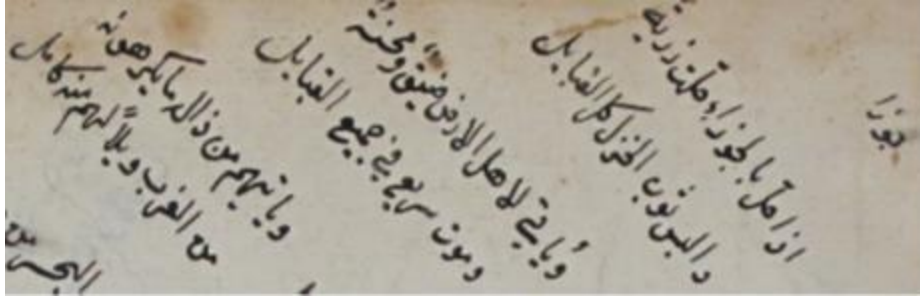 جوزا
اذا حل بالجوزاء حلت رزية
والبس ثوب الخز كل القبايل
وياتي لاهل الارض ضيق ومحنة
وموت سريع في جميع القبايل
وياتيهم من ذاك ما يكرهونه
من الغرب ويلاً لهم منه كامل